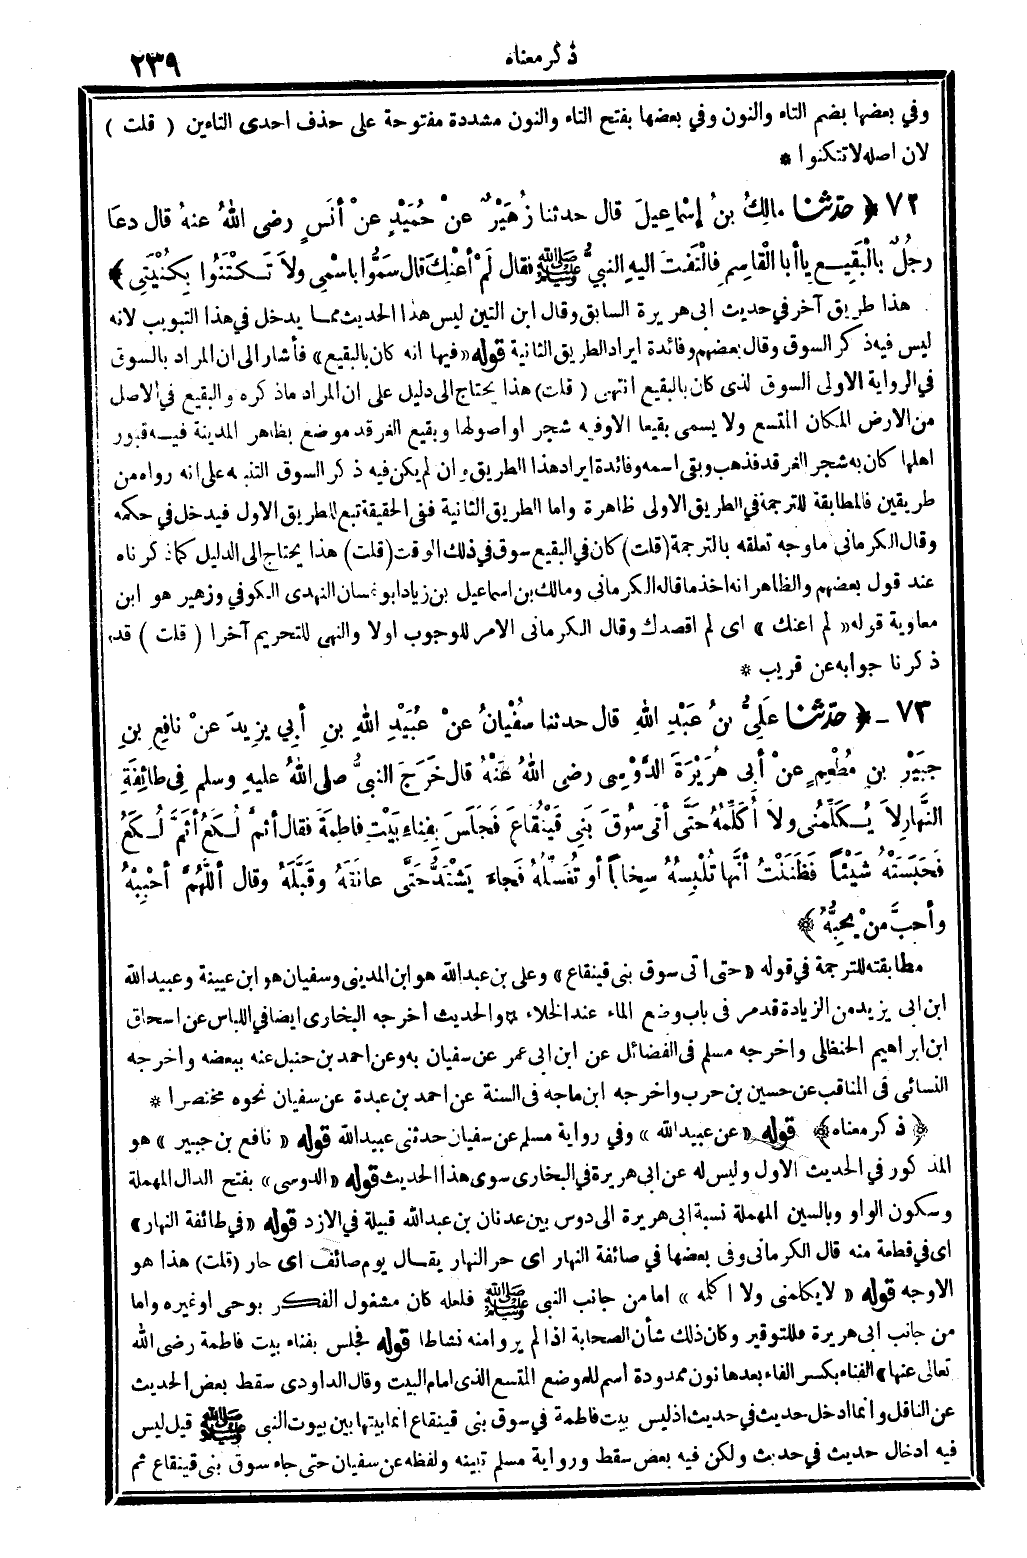 ذكر معناه
٢٣٩
وفي بعضها بضم التاء والنون وفي بعضها بفتح التاء والنون مشددة مفتوحة على حذف احدى التاءين ( قلت )
لان اصله لا تتكنوا *
٧٢ ﴿ حدثنا مالِكُ بنُ إسْماعِيلَ قال حدثنا زُهَيْرٌ عنْ حُمَيْدٍ عنْ أنَسٍ رضى اللهُ عنهُ قال دعَا
رجُلٌ بالْبَقِيعِ ياأبا الْقاسِمِ فالْتَفَتَ اليهِ النبيُّ ﷺ فقال لَمْ أعْنِكَ قال سَمُّوا باسْمِي ولاَ تَكْتَنُوا بِكُنْيَتِي ﴾
هذا طريق آخر في حديث ابى هريرة السابق وقال ابن التين ليس هذا الحديث مما يدخل في هذا التبويب لانه
ليس فيه ذكر السوق وقال بعضهم وفائدة ايراد الطريق الثانية قوله «فيها انه كان بالبقيع» فأشار الى ان المراد بالسوق
في الرواية الاولى السوق لذى كان بالبقيع انتهى ( قلت ) هذا يحتاج الى دليل على ان المراد ماذكره والبقيع في الاصل
من الارض المكان المتسع ولا يسمى بقيعا الاوفيه شجر او اصولها وبقيع الغرقد موضع بظاهر المدينة فيه قبور
اهلها كان به شجر الغرقد فذهب وبقى اسمه وفائدة ايراد هذا الطريق وان لم يكن فيه ذكر السوق التنبيه على انه رواه من
طريقين فالمطابقة للترجمة في الطريق الاولى ظاهرة واما الطريق الثانية ففى الحقيقة تبع للطريق الاول فيدخل في حكمه
وقال الكرمانى ماوجه تعلقه بالترجمة (قلت) كان في البقيع سوق في ذلك الوقت (قلت) هذا يحتاج الى الدليل كما ذكرناه
عند قول بعضهم والظاهر انه اخذ ما قاله الكرماني ومالك بن اسماعيل بن زياد ابو غسان النهدى الكوفي وزهير هو ابن
معاوية قوله « لم اعنك » اى لم اقصدك وقال الكرمانى الامر للوجوب اولا والنهى للتحريم آخرا ( قلت ) قد
ذكرنا جوابه عن قريب *
٧٣ - ﴿ حدثنا عَلِيُّ بنُ عَبْدِ اللهِ قال حدثنا سفْيانُ عنْ عُبَيْدِ اللهِ بنِ أبي يزِيدَ عنْ نافِعِ بنِ
جبَيْرِ بنِ مُطْعِمٍ عنْ أبى هُرَيْرَةَ الدَّوْسِى رضى اللهُ عَنْهُ قال خَرَجَ النبيُّ صلى اللهُ عليهِ وسلم فِى طائِفَةِ
النَّهارِ لاَ يُكَلِّمُنِى ولاَ أُكَلِّمُهُ حَتَّى أتى سُوقَ بَنِى قَيْنُقَاعَ فَجَلَسَ بِفِناءِ بَيْتِ فاطِمَةَ فقال أثَمَّ لُكَعُ أثَمَّ لُكَعُ
فَحَبَسَتْهُ شَيْئاً فَظَنَنْتُ أنَّها تُلْبِسُهُ سِخاباً أو تُغَسِّلُهُ فَجاءَ يَشْتَدُّ حَتَّى عانَقَهُ وقَبَّلَهُ وقال أللّهُمَّ أحْبِبْهُ
وأحِبَّ مَنْ يُحِبُّهُ ﴾
مطابقته للترجمة في قوله « حتى اتى سوق بنى قينقاع » وعلى بن عبد الله هو ابن المدينى وسفيان هو ابن عيينة وعبيد الله
ابن ابى يزيد من الزيادة قد مر فى باب وضع الماء عند الخلاء * والحديث أخرجه البخارى ايضا في اللباس عن اسحاق
ابن ابراهيم الحنظلى واخرجه مسلم فى الفضائل عن ابن ابى عمر عن سفيان به وعن احمد بن حنبل عنه ببعضه واخرجه
النسائى فى المناقب عن حسين بن حرب واخرجه ابن ماجه فى السنة عن احمد بن عبدة عن سفيان نحوه مختصرا *
﴿ ذكر معناه ﴾ قوله «عن عبيد الله » وفي رواية مسلم عن سفيان حدثنى عبيد الله قوله « نافع بن جبير » هو
المذكور في الحديث الاول وليس له عن ابى هريرة في البخارى سوى هذا الحديث قوله «الدوسى» بفتح الدال المهملة
وسكون الواو وبالسين المهملة نسبة ابى هريرة الى دوس بين عدنان بن عبد الله قبيلة في الازد قوله «في طائفة النهار»
اى فى قطعة منه قال الكرمانى وفى بعضها في صائفة النهار اى حر النهار يقال يوم صائف اى حار (قلت) هذا هو
الاوجه قوله « لا يكلمنى ولا اكلمه » اما من جانب النبى ﷺ فلعله كان مشغول الفكر بوحى او غيره واما
من جانب ابى هريرة فللتوقير وكان ذلك شأن الصحابة اذا لم يروا منه نشاطا قوله فجلس بفناء بيت فاطمة رضى الله
تعالى عنها» الفناء بكسر الفاء بعدها نون ممدودة أسم للموضع المتسع الذى امام البيت وقال الداودى سقط بعض الحديث
عن الناقل وانما ادخل حديث في حديث اذ ليس بيت فاطمة في سوق بنى قينقاع انما بيتها بين بيوت النبى ﷺ قيل ليس
فيه ادخال حديث في حديث ولكن فيه بعض سقط ورواية مسلم تبينه ولفظه عن سفيان حتى جاء سوق بنى قينقاع ثم